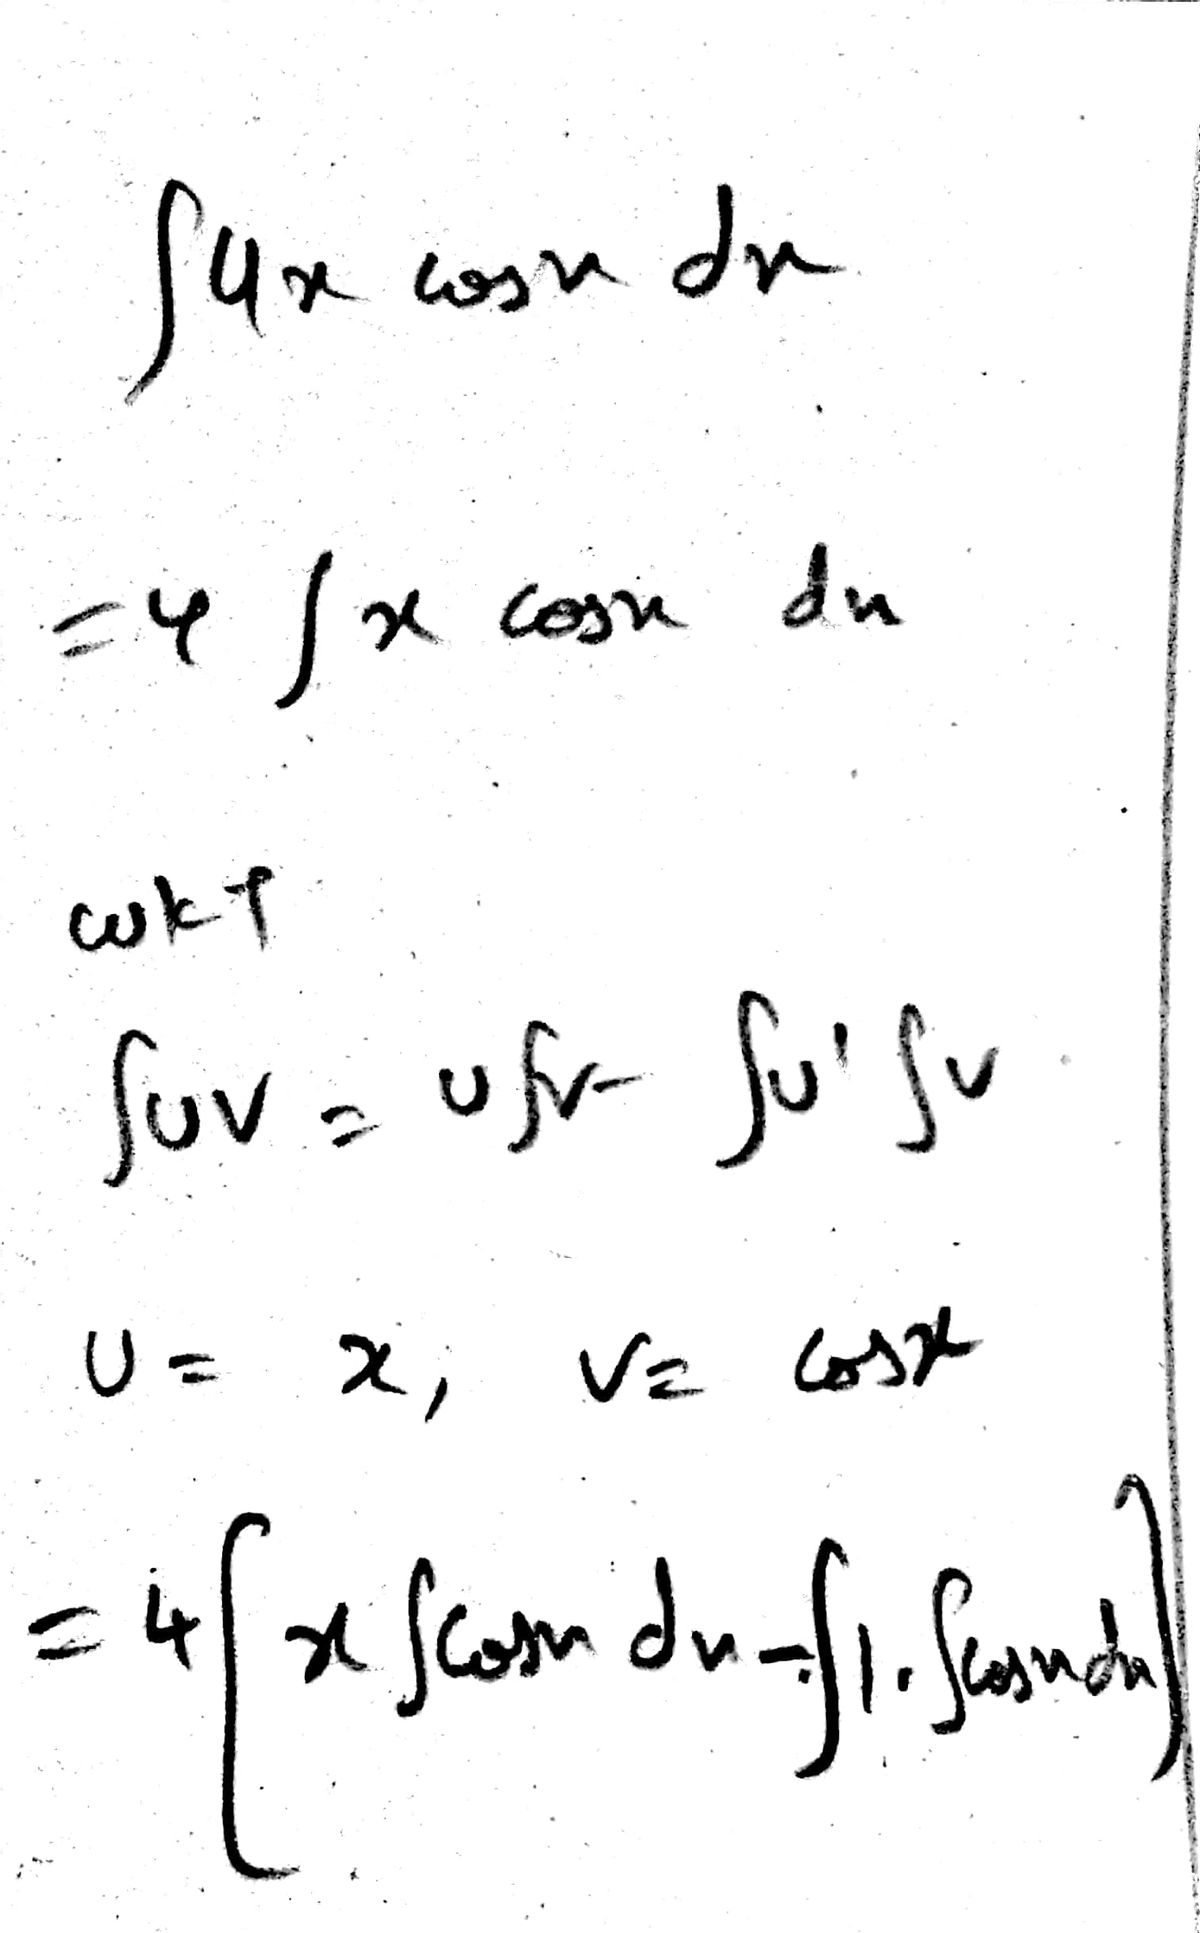 ∫4x cosx dx
=4 ∫x cosx dx
WKT
∫UV = U∫V - ∫U' ∫V
U = x, V = cosx
= 4[x ∫cosx dx - ∫1. ∫cosx dx]